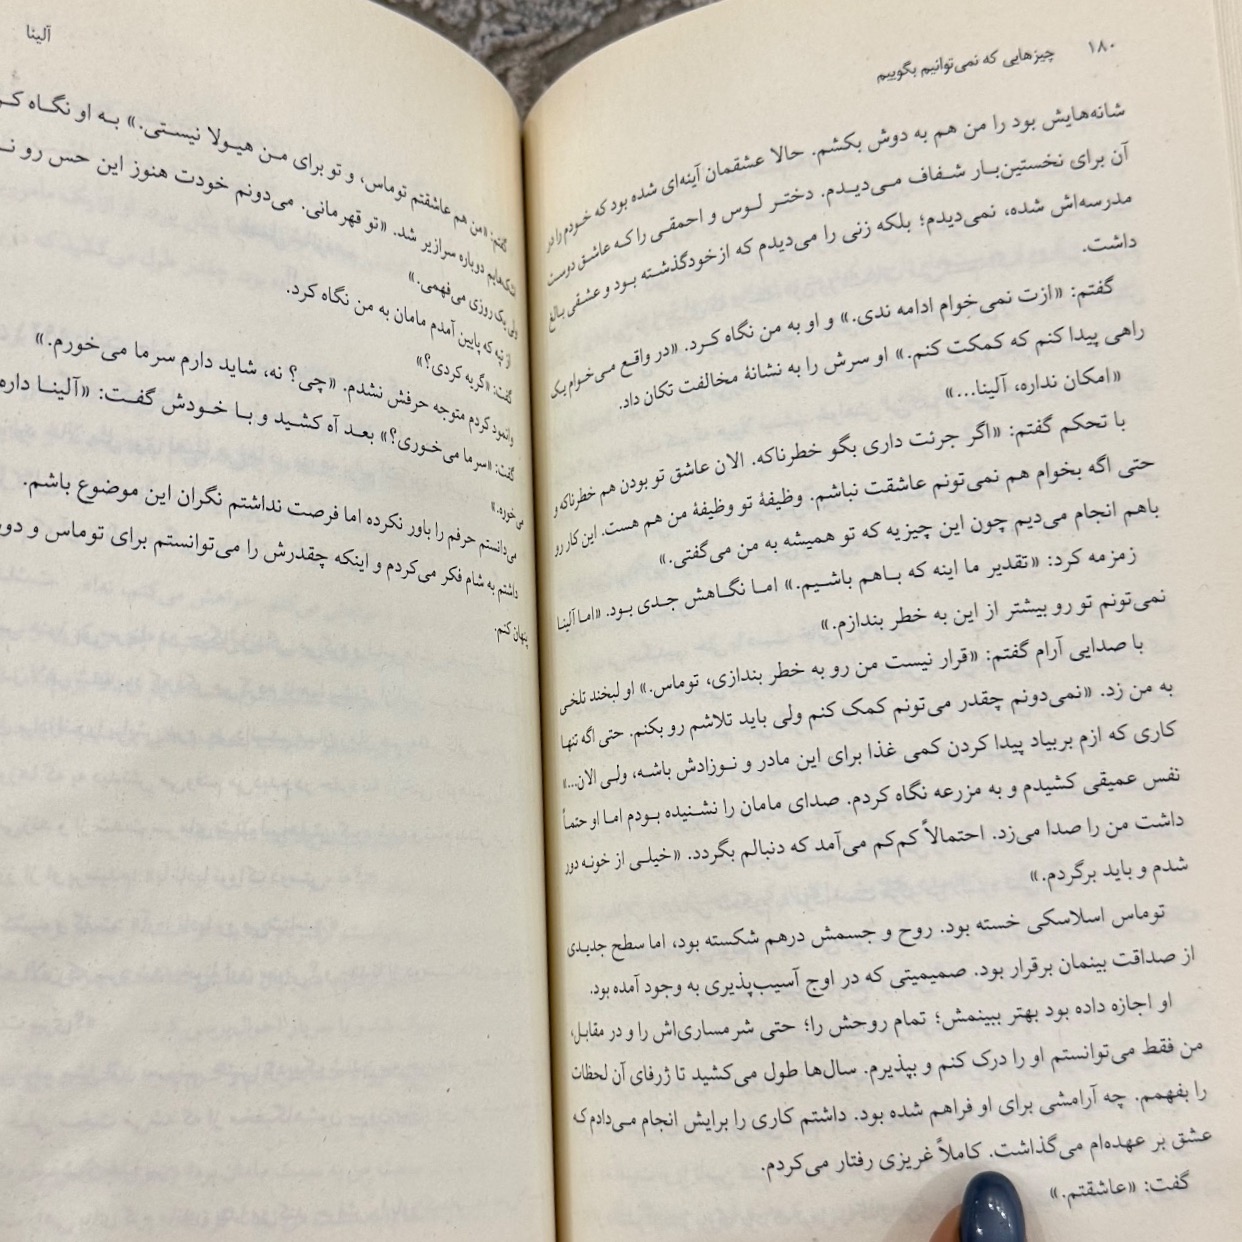 ۱۸۰ چیزهایی که نمی‌توانیم بگوییم
شانه‌هایش بود را من هم به دوش بکشم. حالا عشقمان آینه‌ای شده بود که خودم را در
آن برای نخستین‌بار شفاف می‌دیدم. دختر لوس و احمقی را که عاشق دوست
مدرسه‌اش شده، نمی‌دیدم؛ بلکه زنی را می‌دیدم که ازخودگذشته بود و عشقی بالغ
داشت.
گفتم: «ازت نمی‌خوام ادامه ندی.» و او به من نگاه کرد. «در واقع می‌خوام یک
راهی پیدا کنم که کمکت کنم.» او سرش را به نشانهٔ مخالفت تکان داد.
«امکان نداره، آلینا...»
با تحکم گفتم: «اگر جرئت داری بگو خطرناکه. الان عاشق تو بودن هم خطرناکه و
حتی اگه بخوام هم نمی‌تونم عاشقت نباشم. وظیفهٔ تو وظیفهٔ من هم هست. این کار رو
باهم انجام می‌دیم چون این چیزیه که تو همیشه به من می‌گفتی.»
زمزمه کرد: «تقدیر ما اینه که باهم باشیم.» اما نگاهش جدی بود. «اما آلینا
نمی‌تونم تو رو بیشتر از این به خطر بندازم.»
با صدایی آرام گفتم: «قرار نیست من رو به خطر بندازی، توماس.» او لبخند تلخی
به من زد. «نمی‌دونم چقدر می‌تونم کمک کنم ولی باید تلاشم رو بکنم. حتی اگه تنها
کاری که ازم بربیاد پیدا کردن کمی غذا برای این مادر و نوزادش باشه، ولی الان...»
نفس عمیقی کشیدم و به مزرعه نگاه کردم. صدای مامان را نشنیده بودم اما او حتماً
داشت من را صدا می‌زد. احتمالاً کم‌کم می‌آمد که دنبالم بگردد. «خیلی از خونه دور
شدم و باید برگردم.»
توماس اسلاسکی خسته بود. روح و جسمش درهم شکسته بود، اما سطح جدیدی
از صداقت بینمان برقرار بود. صمیمیتی که در اوج آسیب‌پذیری به وجود آمده بود.
او اجازه داده بود بهتر ببینمش؛ تمام روحش را؛ حتی شرمساری‌اش را و در مقابل،
من فقط می‌توانستم او را درک کنم و بپذیرم. سال‌ها طول می‌کشید تا ژرفای آن لحظات
را بفهمم. چه آرامشی برای او فراهم شده بود. داشتم کاری را برایش انجام می‌دادم که
عشق بر عهده‌ام می‌گذاشت. کاملاً غریزی رفتار می‌کردم.
گفت: «عاشقتم.»
آلینا
گفتم: «من هم عاشقتم توماس، و تو برای من هیولا نیستی.» به او نگاه
اشک‌هایم دوباره سرازیر شد. «تو قهرمانی. می‌دونم خودت هنوز این حس رو
ولی یک روزی می‌فهمی.»
از تپه که پایین آمدم مامان به من نگاه کرد.
گفت: «گریه کردی؟»
وانمود کردم متوجه حرفش نشدم. «چی؟ نه، شاید دارم سرما می‌خورم.»
گفت: «سرما می‌خوری؟» بعد آه کشید و با خودش گفت: «آلینا داره
می‌خوره.»
می‌دانستم حرفم را باور نکرده اما فرصت نداشتم نگران این موضوع باشم.
داشتم به شام فکر می‌کردم و اینکه چقدرش را می‌توانستم برای توماس و
پنهان کنم.